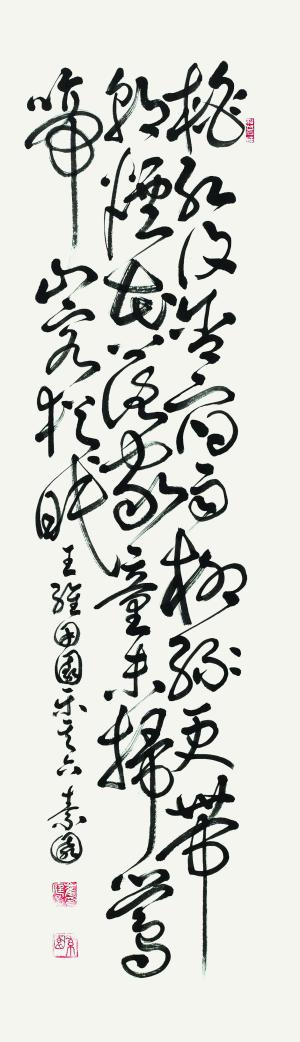 桃紅復含宿雨柳綠更帶
朝煙花落家童未掃鶯
啼山客猶眠
王維田園樂其六 素